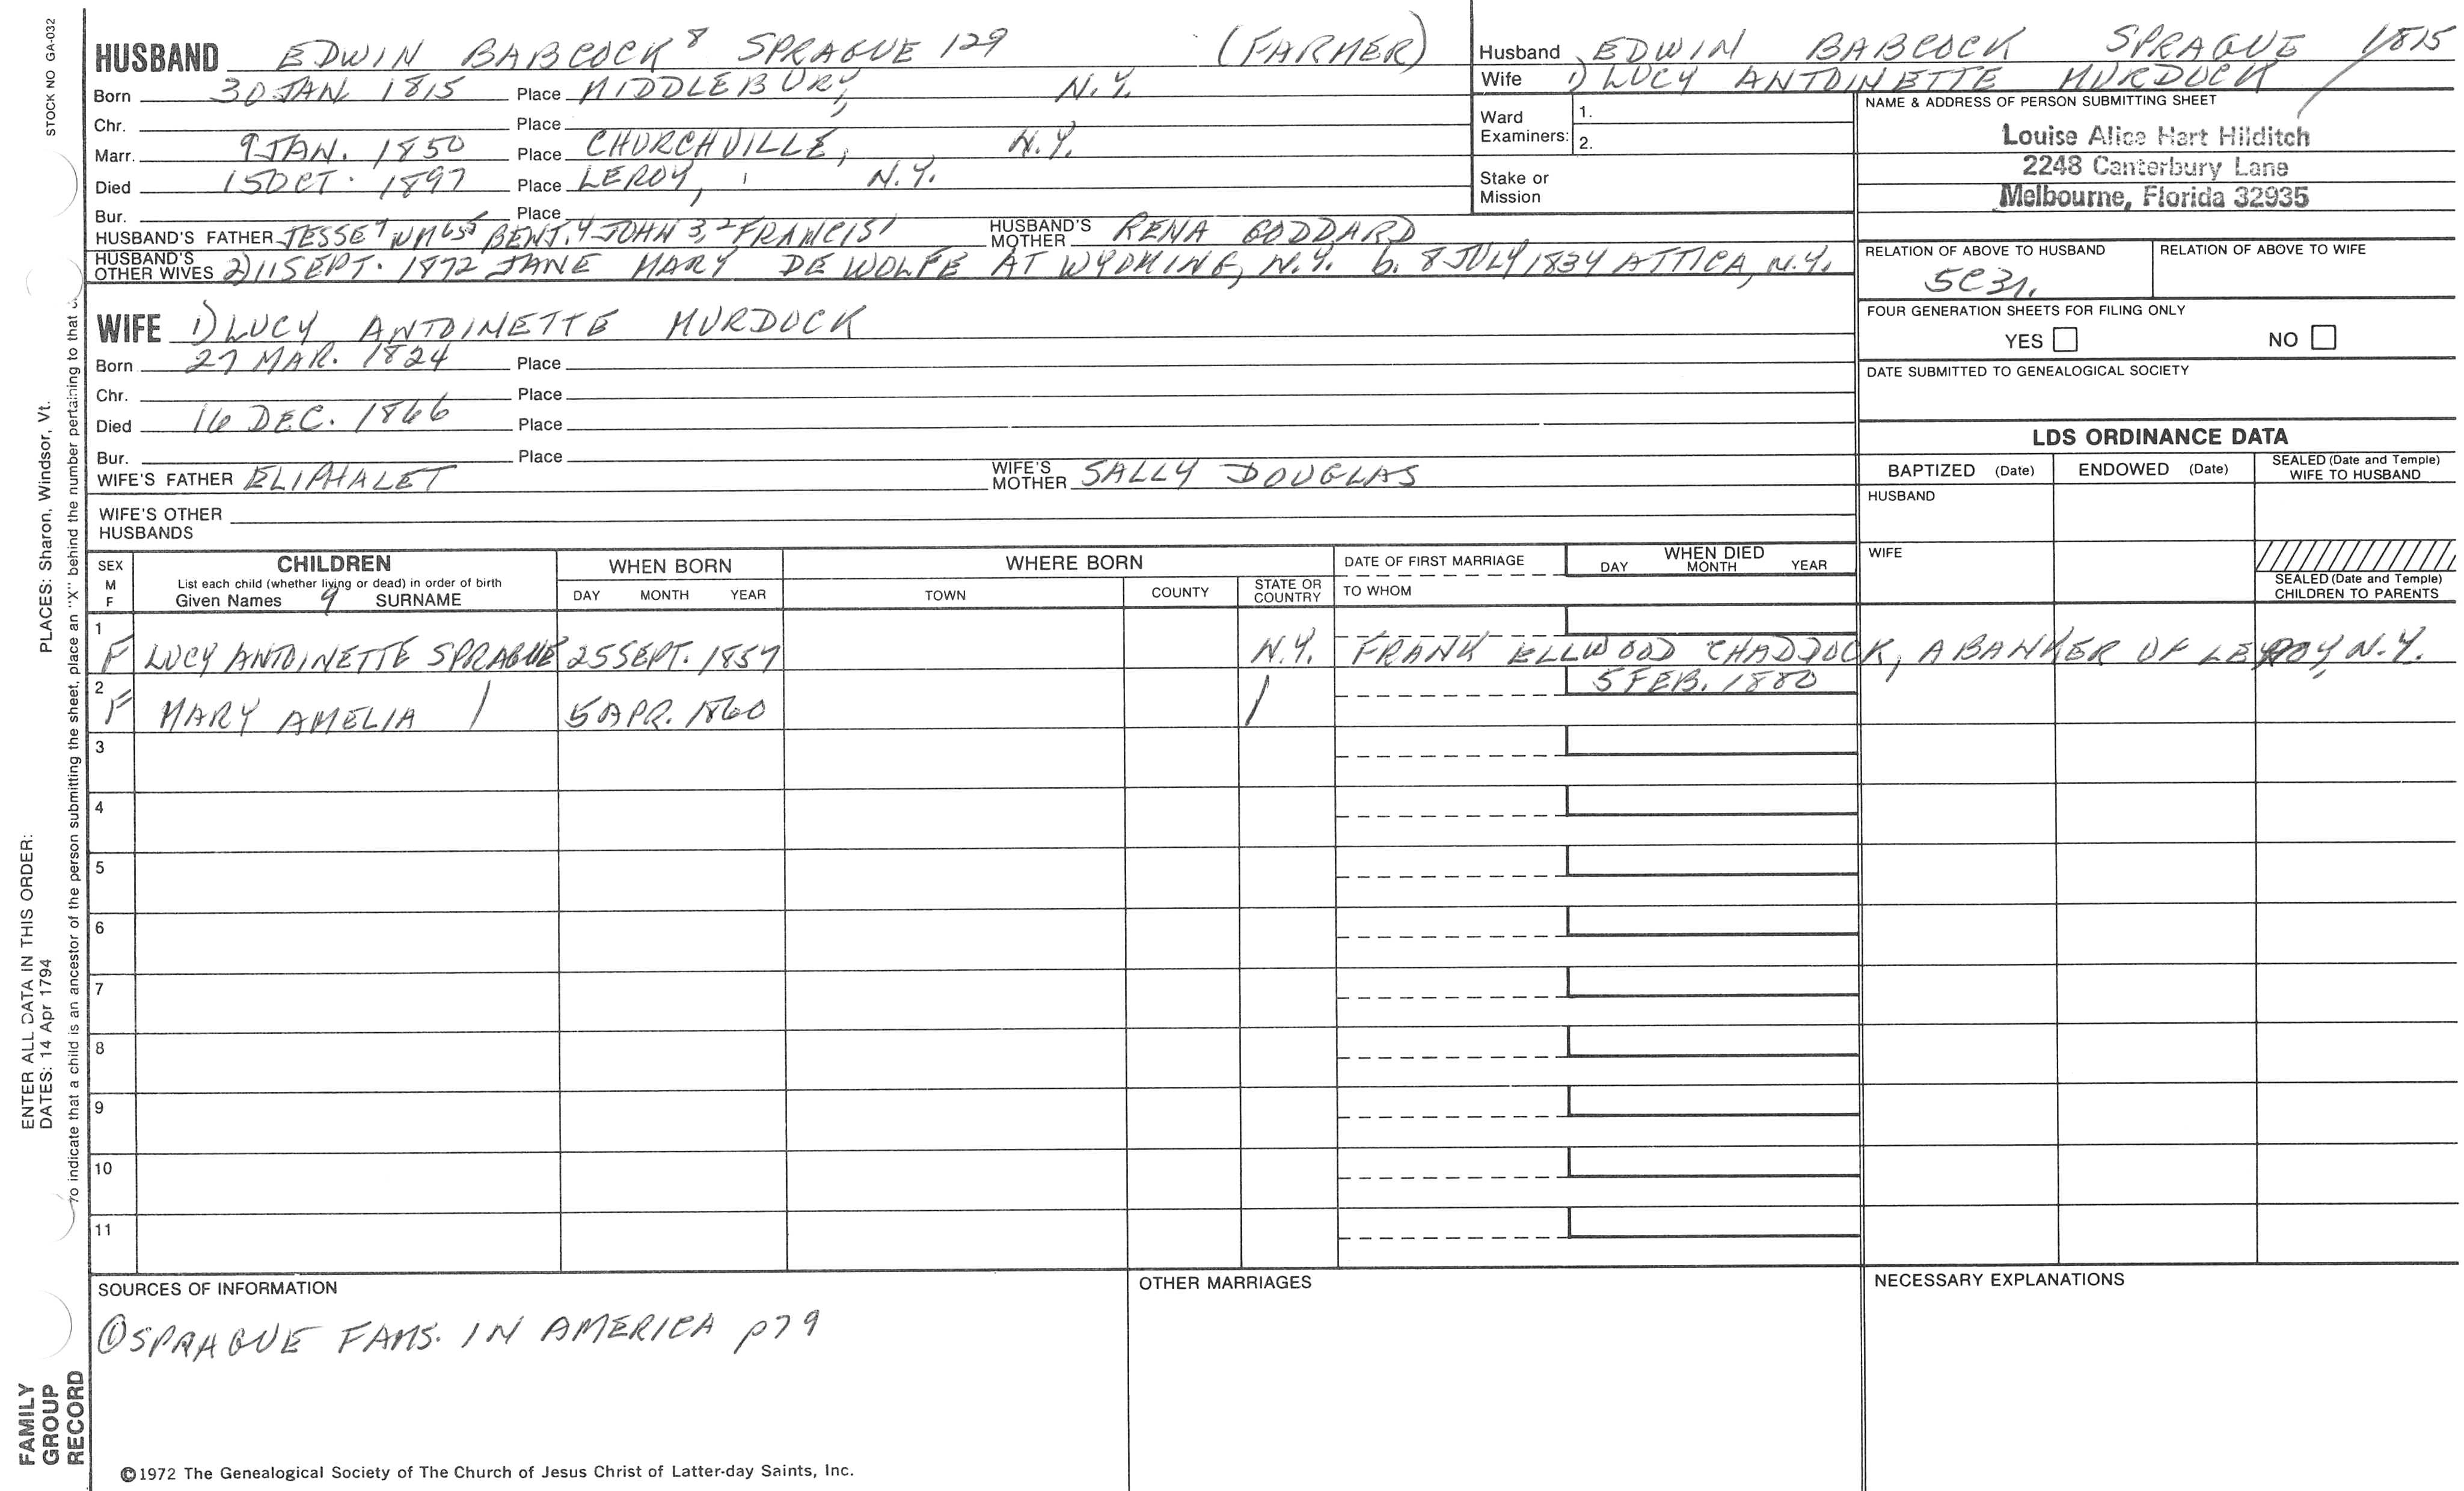 STOCK NO GA-032
PLACES: Sharon, Windsor, Vt.
ENTER ALL DATA IN THIS ORDER:
DATES: 14 Apr 1794
To indicate that a child is an ancestor of the person submitting the sheet, place an "X" behind the number pertaining to that
FAMILY
GROUP
RECORD
HUSBAND EDWIN BABCOCK 8 SPRAGUE 129 (FARMER)
Born 30 JAN. 1815 Place MIDDLEBURY, N.Y.
Chr. Place
Marr. 9 JAN. 1850 Place CHURCHVILLE, N.Y.
Died 15 OCT. 1897 Place LEROY, N.Y.
Bur. Place
HUSBAND'S FATHER JESSE 7 WM 6 5 BENJ. 4 JOHN 3, 2 FRANCIS 1 HUSBAND'S MOTHER RENA GODDARD
HUSBAND'S OTHER WIVES 2) 11 SEPT. 1872 JANE MARY DE WOLFE AT WYOMING, N.Y. b. 8 JULY 1834 ATTICA, N.Y.
WIFE 1) LUCY ANTOINETTE MURDOCK
Born 27 MAR. 1824 Place
Chr. Place
Died 16 DEC. 1866 Place
Bur. Place
WIFE'S FATHER ELIPHALET WIFE'S MOTHER SALLY DOUGLAS
WIFE'S OTHER
HUSBANDS
Husband EDWIN BABCOCK SPRAGUE 1815
Wife 1) LUCY ANTOINETTE MURDOCK
Ward Examiners: 1.
2.
Stake or
Mission
NAME & ADDRESS OF PERSON SUBMITTING SHEET
Louise Alice Hart Hilditch
2248 Canterbury Lane
Melbourne, Florida 32935
RELATION OF ABOVE TO HUSBAND RELATION OF ABOVE TO WIFE
5C3r.
FOUR GENERATION SHEETS FOR FILING ONLY
YES NO
DATE SUBMITTED TO GENEALOGICAL SOCIETY
LDS ORDINANCE DATA
BAPTIZED (Date) ENDOWED (Date) SEALED (Date and Temple) WIFE TO HUSBAND
HUSBAND
WIFE
SEALED (Date and Temple)
CHILDREN TO PARENTS
SEX
M
F
CHILDREN
List each child (whether living or dead) in order of birth
Given Names 9 SURNAME
WHEN BORN
DAY MONTH YEAR
WHERE BORN
TOWN COUNTY STATE OR COUNTRY
DATE OF FIRST MARRIAGE
TO WHOM
WHEN DIED
DAY MONTH YEAR
1
F LUCY ANTOINETTE SPRAGUE 25 SEPT. 1857 N.Y. FRANK ELLWOOD CHADDOCK, A BANKER OF LEROY, N.Y.
2 5 FEB. 1880
F MARY AMELIA / 5 APR. 1860 /
3
4
5
6
7
8
9
10
11
SOURCES OF INFORMATION
① SPRAGUE FAMS. IN AMERICA p79
OTHER MARRIAGES
NECESSARY EXPLANATIONS
©1972 The Genealogical Society of The Church of Jesus Christ of Latter-day Saints, Inc.